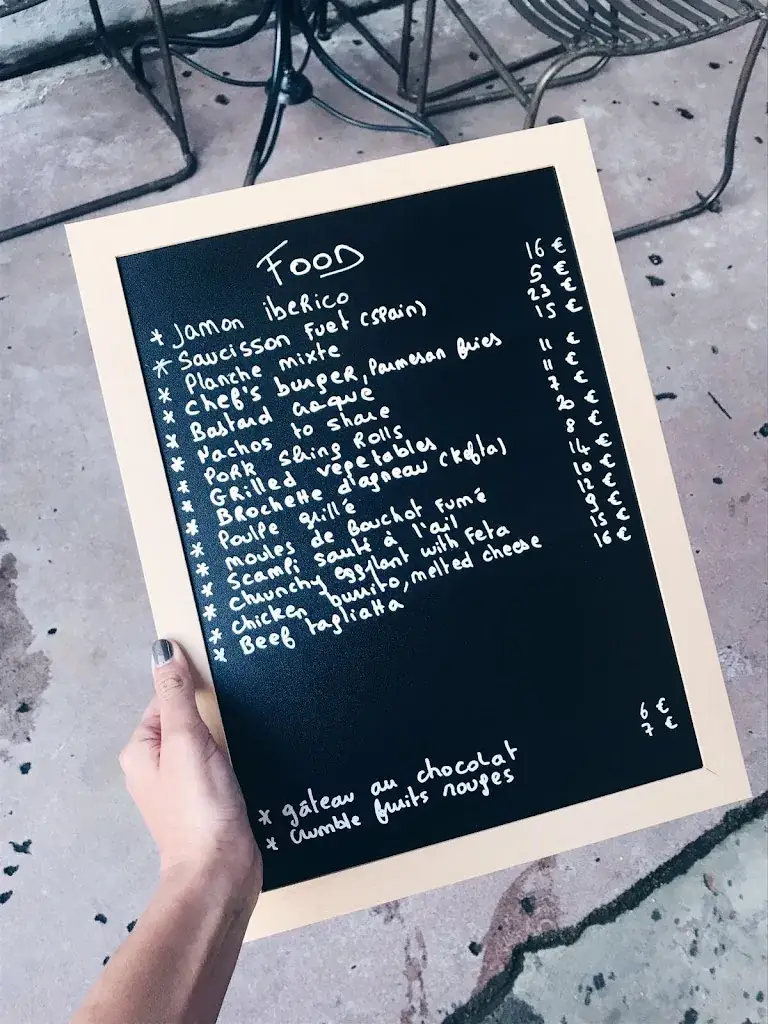 Food
* Jamon iberico 16 €
* Saucisson Fuet (Spain) 5 €
* Planche mixte 23 €
* Chef's burger, Parmesan fries 15 €
* Bastard croque 11 €
* Nachos to share 11 €
* Pork spring Rolls 7 €
* Grilled vegetables 20 €
* Brochette d'agneau (Kefta) 8 €
* Poulpe grillé 14 €
* moules de Bouchot Fumé 10 €
* Scampi sauté à l'ail 12 €
* Chrunchy eggplant with Feta 9 €
* chicken burrito, melted cheese 15 €
* Beef tagliatta 16 €
* gâteau au chocolat 6 €
* crumble fruits rouges 7 €